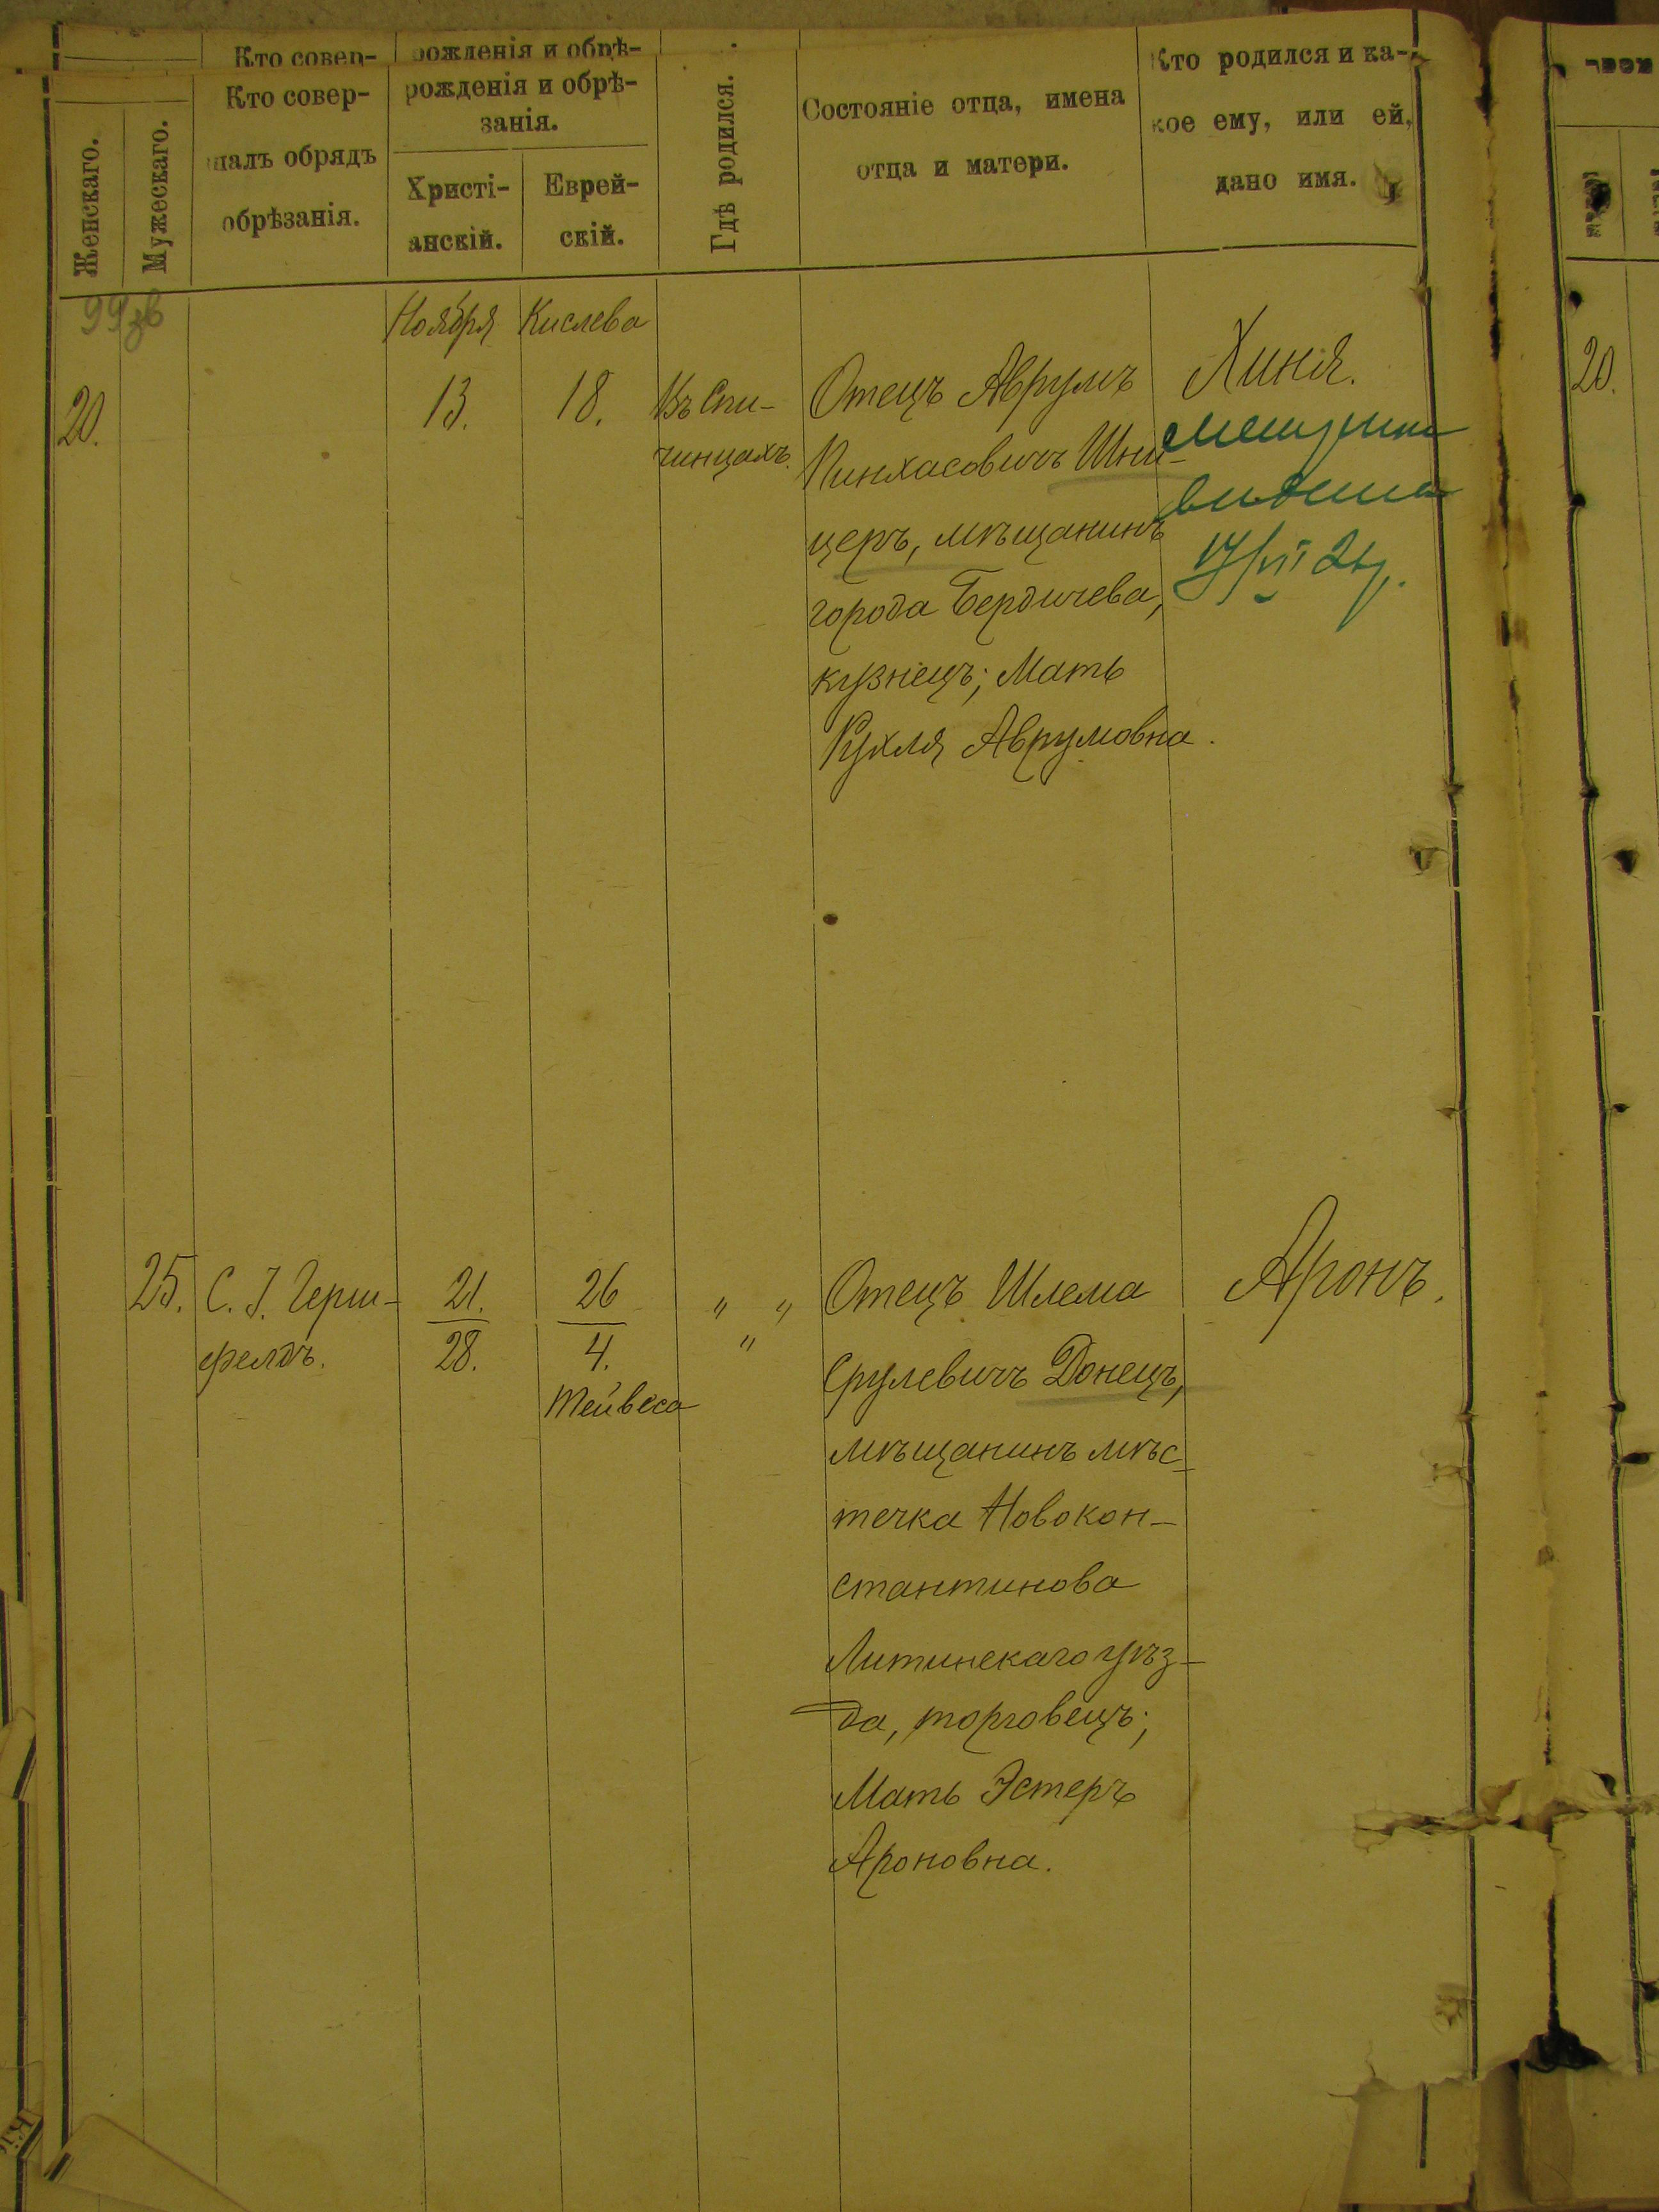 Кто совер-
рожденія и обрѣ-
Женскаго.
Мужескаго.
Кто совер-
шалъ обрядъ
обрѣзанія.
рожденія и обрѣ-
занія.
Христі-
анскій.
Еврей-
скій.
Гдѣ родился.
Состояніе отца, имена
отца и матери.
Кто родился и ка-
кое ему, или ей,
дано имя.
99зв
Ноября
Кислева
20.
13.
18.
Въ Спи-
чинцахъ.
Отецъ Аврумъ
Пинхасовичъ Шни-
церъ, мѣщанинъ
города Бердичева,
кузнецъ; Мать
Рухля Аврумовна.
Хиня.
17/VI 21г.
20.
25.
С. І. Герш-
фелдъ.
21.
28.
26
4.
Тейвеса
" "
"
Отецъ Шлема
Срулевичъ Донецъ,
мѣщанинъ мѣс-
течка Новокон-
стантинова
Литинскаго уѣз-
да, торговецъ;
Мать Эстеръ
Ароновна.
Аронъ.